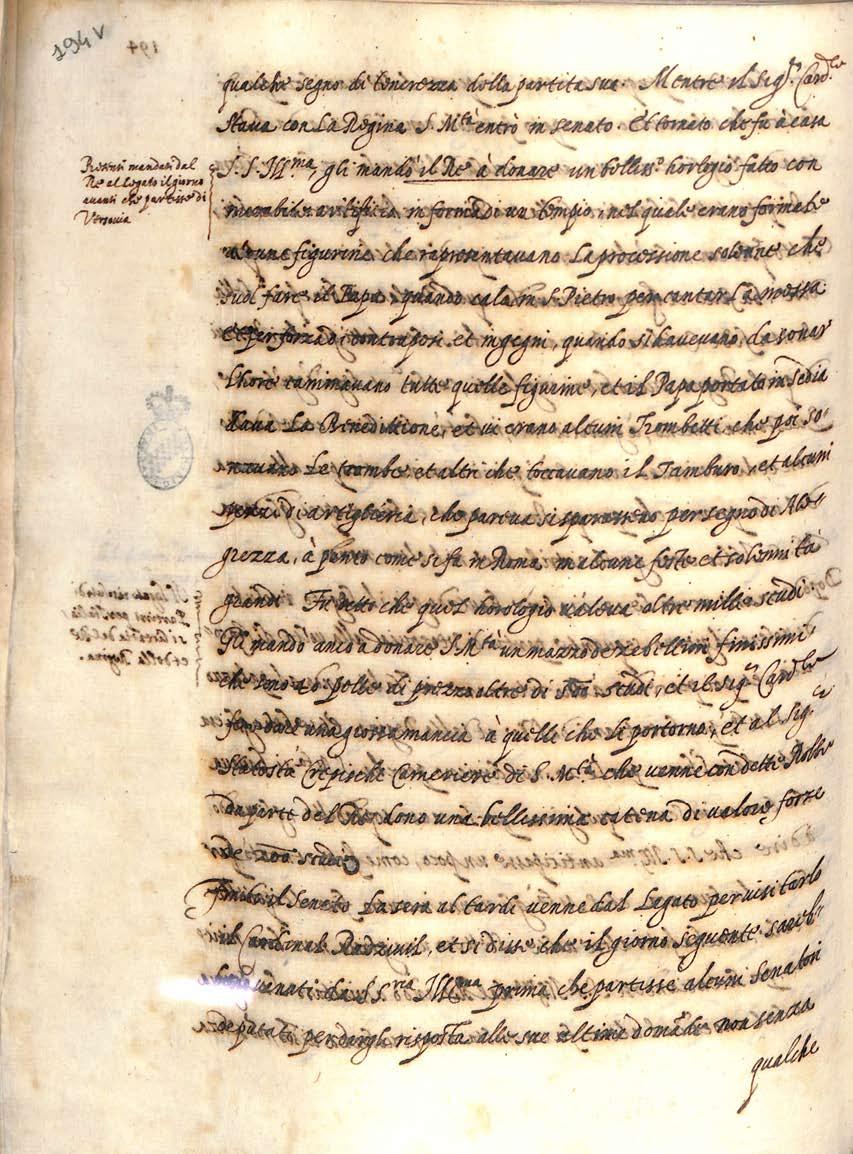 194v
194
qualche segno di tenerezza della partita sua. Mentre il Sig.r Card.le
stava con La Regina S. M.tà entrò in senato. Et tornato che fu à casa
S. S. Ill.ma, gli mandò il Rè à donare un belliss.o horlogio fatto con
Presenti mandati dal
Rè al Legato il giorno
avanti che partisse di
Varsavia
mirabile artificio in forma di un tempio, nel quale erano formate
alcune figurine che rapresentavano La processione solenne che
suol fare il Papa, quando cala in S. Pietro per cantar La messa.
Et per forza di contrapesi et ingegni, quando si havevano da sonar
l'hore caminavano tutte quelle figurine, et il Papa portato in sedia
dava La Benedittione, et vi erano alcuni Trombetti che poi so-
navano Le trombe et altri che toccavano il Tamburo, et alcuni
pezzi di artiglieria, che pareva si sparassero per segno di Alle-
grezza, à ponto come si fa in Roma in alcune feste et solennità
grandi. Fu detto che quel horologio valeva oltre mille scudi
Gli mandò anco à donare S. M.tà un mazzo de zebellini finissimi
che sono 40 pelle di prezzo oltre di 500. scudi, et il Sig.r Card.le
fece dare una grossa mancia à quelli che li portorno, et al Sig.r
cameriere di S. M.tà che venne con dette Robbe
da parte del Rè, donò una bellissima catena di valore forze
scudi.
Finito il Senato La sera al tardi venne dal Legato per visitarlo
il Cardinal Radzivil, et si disse che il giorno seguente sareb-
venati da S. S.ria Ill.ma prima che partisse alcuni senatori
deputati per dargli risposta alle sue ultime domãde non senza
qualche